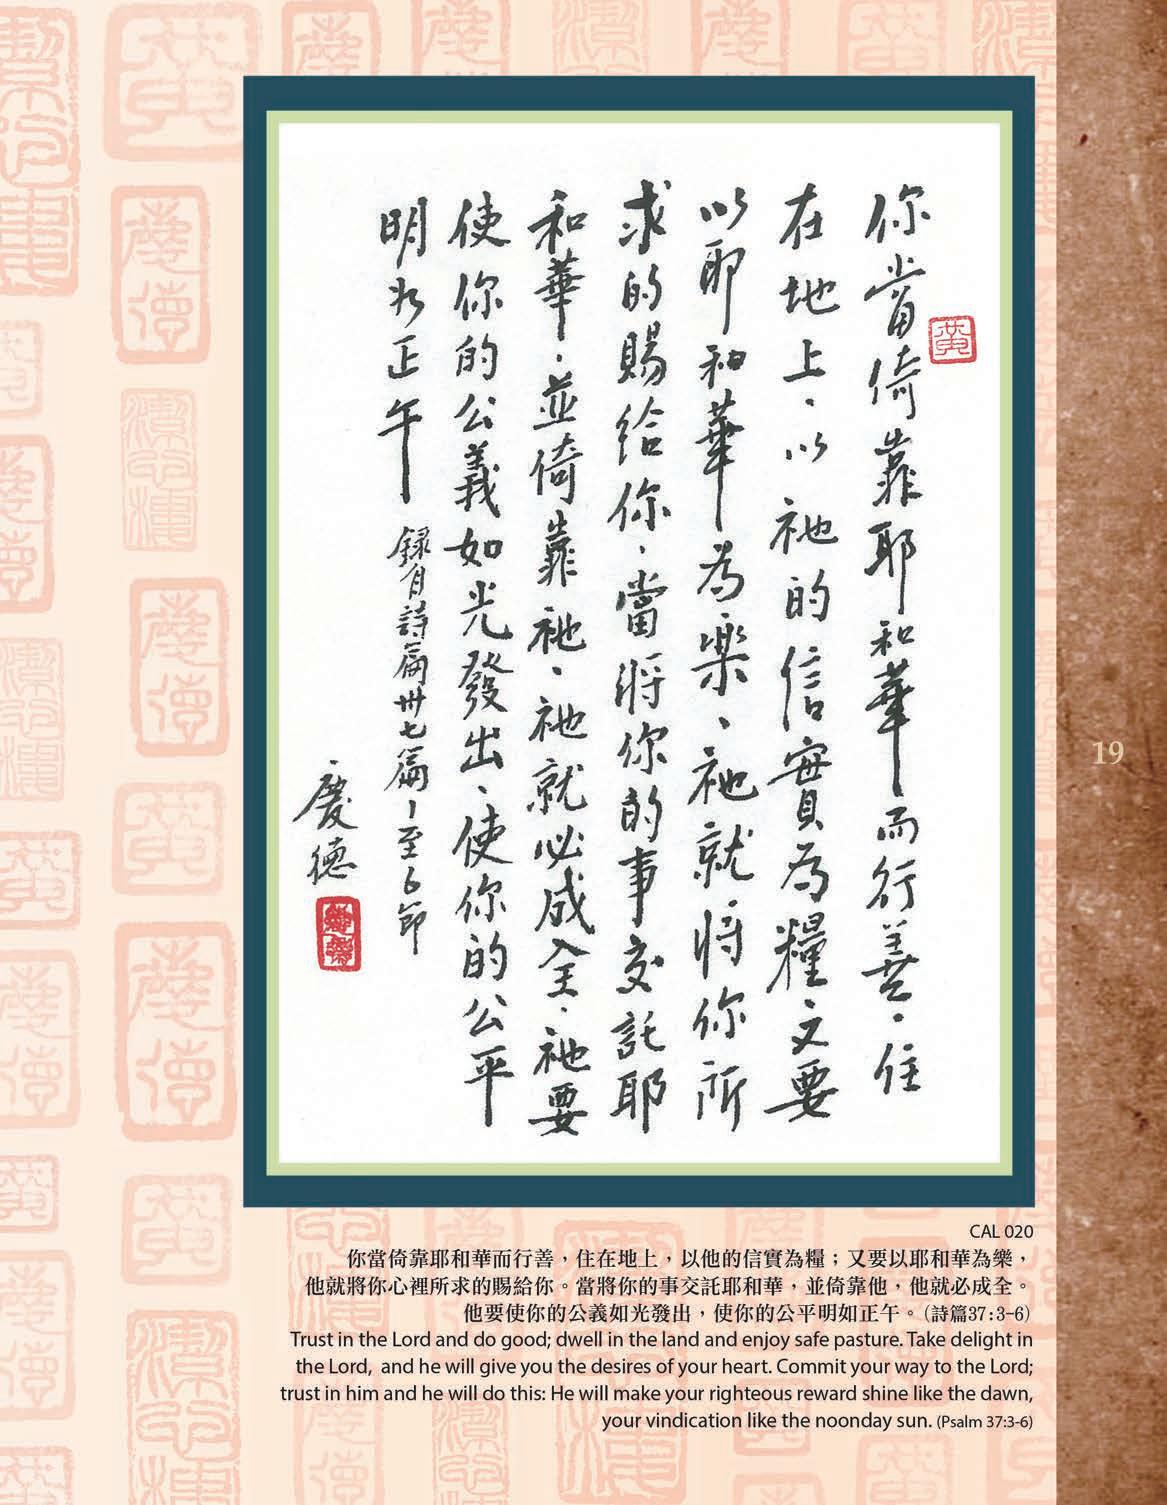 黃
你當倚靠耶和華而行善、住
在地上、以祂的信實為糧、又要
以耶和華為樂、祂就將你所
求的賜給你、當將你的事交託耶
和華、並倚靠祂、祂就必成全、祂要
使你的公義如光發出、使你的公平
明如正午 錄自詩篇卅七篇1至6節
慶德
19
CAL 020
你當倚靠耶和華而行善，住在地上，以他的信實為糧；又要以耶和華為樂，
他就將你心裡所求的賜給你。當將你的事交託耶和華，並倚靠他，他就必成全。
他要使你的公義如光發出，使你的公平明如正午。（詩篇37:3-6）
Trust in the Lord and do good; dwell in the land and enjoy safe pasture. Take delight in
the Lord, and he will give you the desires of your heart. Commit your way to the Lord;
trust in him and he will do this: He will make your righteous reward shine like the dawn,
your vindication like the noonday sun. (Psalm 37:3-6)